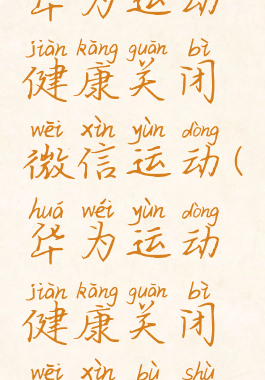 华为运动
jiàn kāng guān bì
健康关闭
wēi xìn yùn dòng
微信运动(
huá wéi yùn dòng
华为运动
jiàn kāng guān bì
健康关闭
wēi xìn bù shù